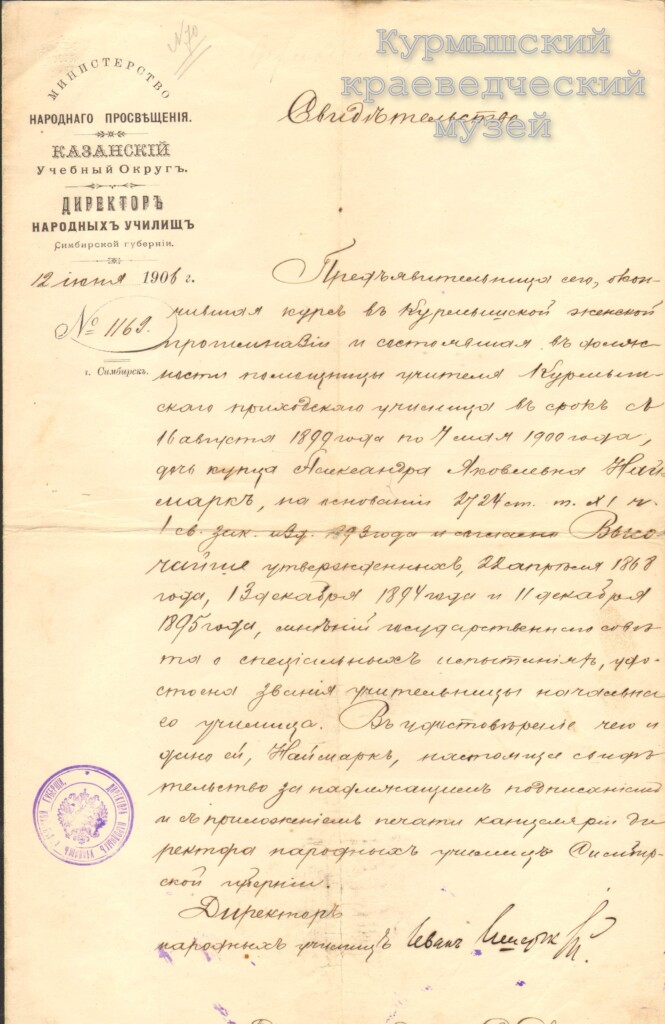 №70
Курмышский
краеведческий
музей
МИНИСТЕРСТВО
НАРОДНАГО ПРОСВѢЩЕНІЯ.
КАЗАНСКІЙ
Учебный Округъ.
ДИРЕКТОРЪ
НАРОДНЫХЪ УЧИЛИЩЪ
Симбирской губерніи.
12 іюня 1906 г.
№ 1169.
г. Симбирскъ.
Свидѣтельство
Предъявительница сего, окон-
чившая курсъ въ Курмышской женской
прогимназіи и состоявшая въ долж-
ности помощницы учителя Курмыш-
скаго приходскаго училища въ срокъ съ
16 августа 1899 года по 7 мая 1900 года,
дочь купца Александра Яковлевна Най-
маркъ, на основаніи 2724 ст. т. XI ч.
1 св. зак. изд. 1893 года и Высо-
чайше утвержденныхъ, 22 апрѣля 1868
года, 13 декабря 1894 года и 11 декабря
1895 года, мнѣній государственнаго совѣ-
та о спеціальныхъ испытаніяхъ, удо-
стоена званія учительницы начальна-
го училища. Въ удостовѣреніе чего и
дано ей, Наймаркъ, настоящее свидѣ-
тельство за надлежащимъ подписаніемъ
и съ приложеніемъ печати канцеляріи Ди-
ректора народныхъ училищъ Симбир-
ской губерніи.
Директоръ
народныхъ училищъ Иванъ